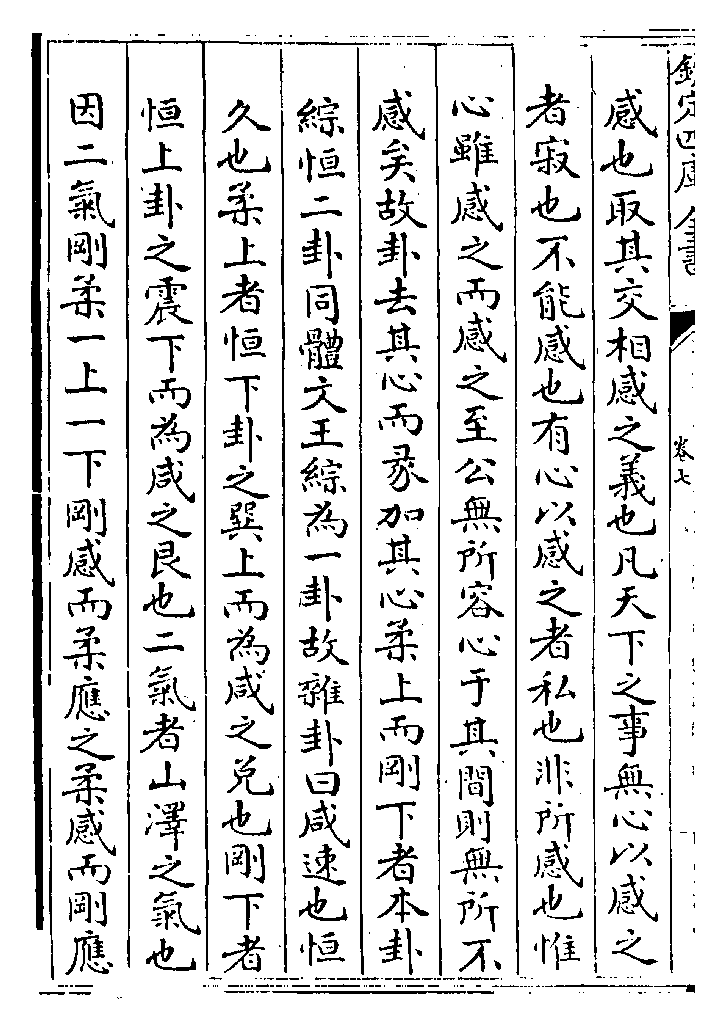 欽定四庫全書
卷七
感也取其交相感之義也凡天下之事無心以感之
者寂也不能感也有心以感之者私也非所感也惟
心雖感之而感之至公無所容心于其間則無所不
感矣故卦去其心而彖加其心柔上而剛下者本卦
綜恒二卦同體文王綜為一卦故雜卦曰咸速也恒
久也柔上者恒下卦之巽上而為咸之兌也剛下者
恒上卦之震下而為咸之艮也二氣者山澤之氣也
因二氣剛柔一上一下剛感而柔應之柔感而剛應